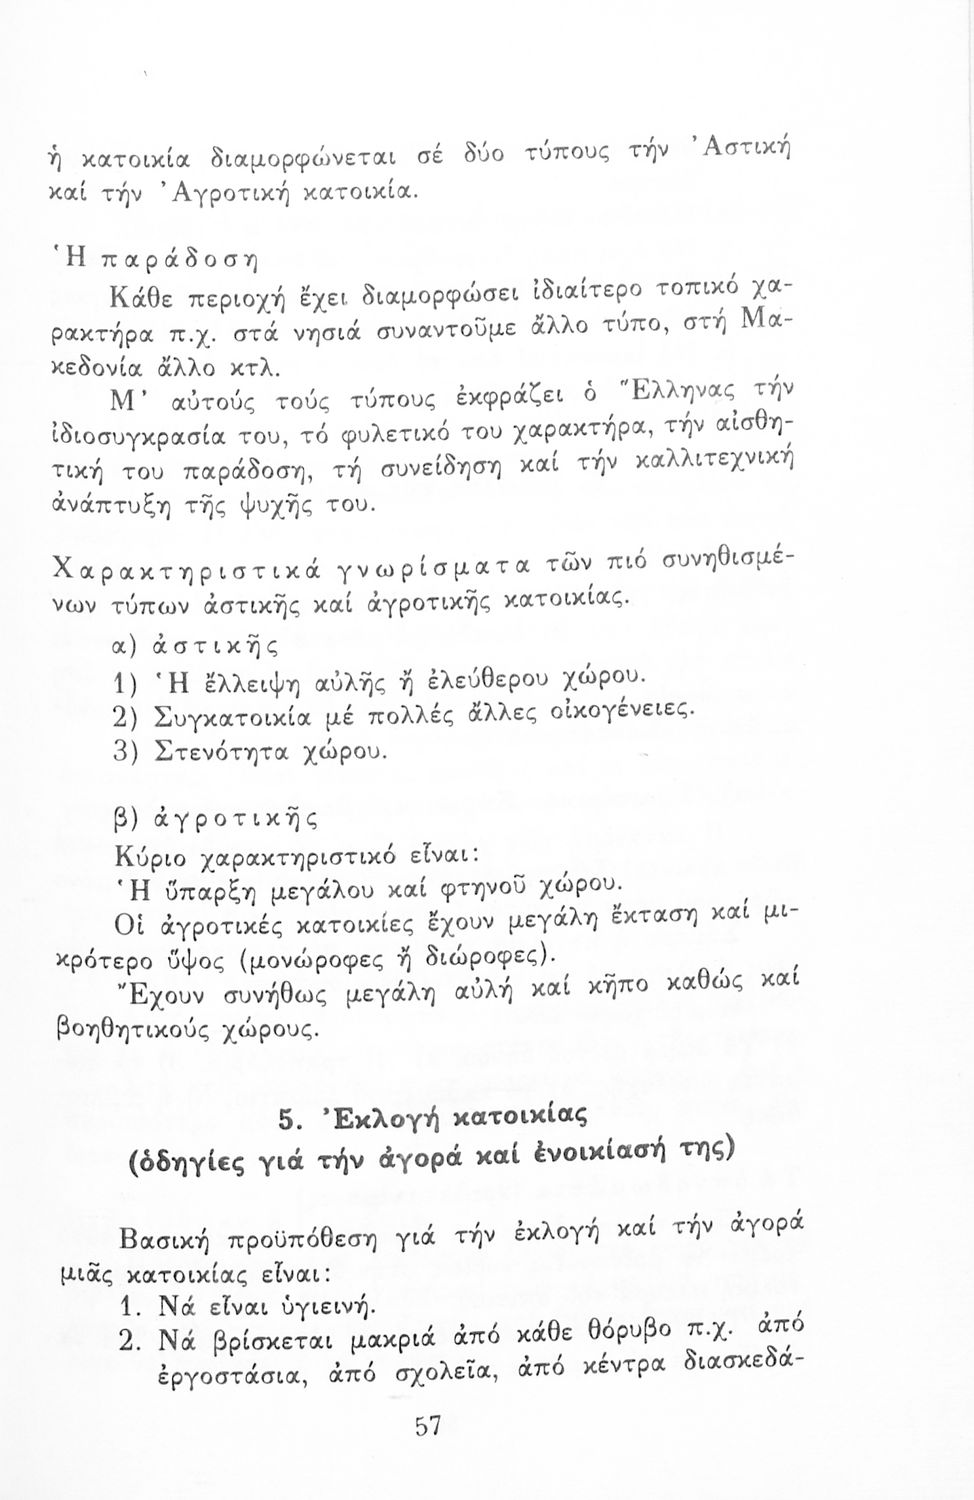 ἡ κατοικία διαμορφώνεται σέ δύο τύπους τήν ᾿Αστική
καί τήν ᾿Αγροτική κατοικία.
῾Η παράδοση
Κάθε περιοχή ἔχει διαμορφώσει ἰδιαίτερο τοπικό χα-
ρακτήρα π.χ. στά νησιά συναντοῦμε ἄλλο τύπο, στή Μα-
κεδονία ἄλλο κτλ.
Μ᾿ αὐτούς τούς τύπους ἐκφράζει ὁ ῞Ελληνας τήν
ἰδιοσυγκρασία του, τό φυλετικό του χαρακτήρα, τήν αἰσθη-
τική του παράδοση, τή συνείδηση καί τήν καλλιτεχνική
ἀνάπτυξη τῆς ψυχῆς του.
Χαρακτηριστικά γνωρίσματα τῶν πιό συνηθισμέ-
νων τύπων ἀστικῆς καί ἀγροτικῆς κατοικίας.
α) ἀστικῆς
1) ῾Η ἔλλειψη αὐλῆς ἤ ἐλεύθερου χώρου.
2) Συγκατοικία μέ πολλές ἄλλες οἰκογένειες.
3) Στενότητα χώρου.
β) ἀγροτικῆς
Κύριο χαρακτηριστικό εἶναι:
῾Η ὕπαρξη μεγάλου καί φτηνοῦ χώρου.
Οἱ ἀγροτικές κατοικίες ἔχουν μεγάλη ἔκταση καί μι-
κρότερο ὕψος (μονώροφες ἤ διώροφες).
῎Εχουν συνήθως μεγάλη αὐλή καί κῆπο καθώς καί
βοηθητικούς χώρους.
5. ᾿Εκλογή κατοικίας
(ὁδηγίες γιά τήν ἀγορά καί ἐνοικίασή της)
Βασική προϋπόθεση γιά τήν ἐκλογή καί τήν ἀγορά
μιᾶς κατοικίας εἶναι:
1. Νά εἶναι ὑγιεινή.
2. Νά βρίσκεται μακριά ἀπό κάθε θόρυβο π.χ. ἀπό
ἐργοστάσια, ἀπό σχολεῖα, ἀπό κέντρα διασκεδά-
57